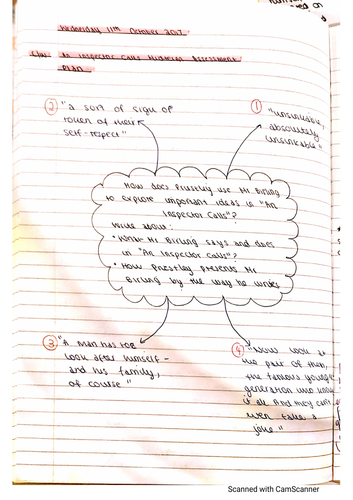 Wednesday 11th October 2017
An Inspector Calls Assessment
Plan
② "a sort of sign or
token of their
self-respect"
① "unsinkable,
absolutely
unsinkable"
How does Priestley use Mr Birling
to explore important ideas in "An
Inspector Calls"?
Write about:
• What Mr Birling says and does
in "An Inspector Calls"?
• How Priestley presents Mr
Birling by the way he writes
③ "A man has to
look after himself -
and his family,
of course"
④ "Now look at
the pair of them,
the famous younger
generation who know
it all. And they can't
even take a
joke"
Scanned with CamScanner